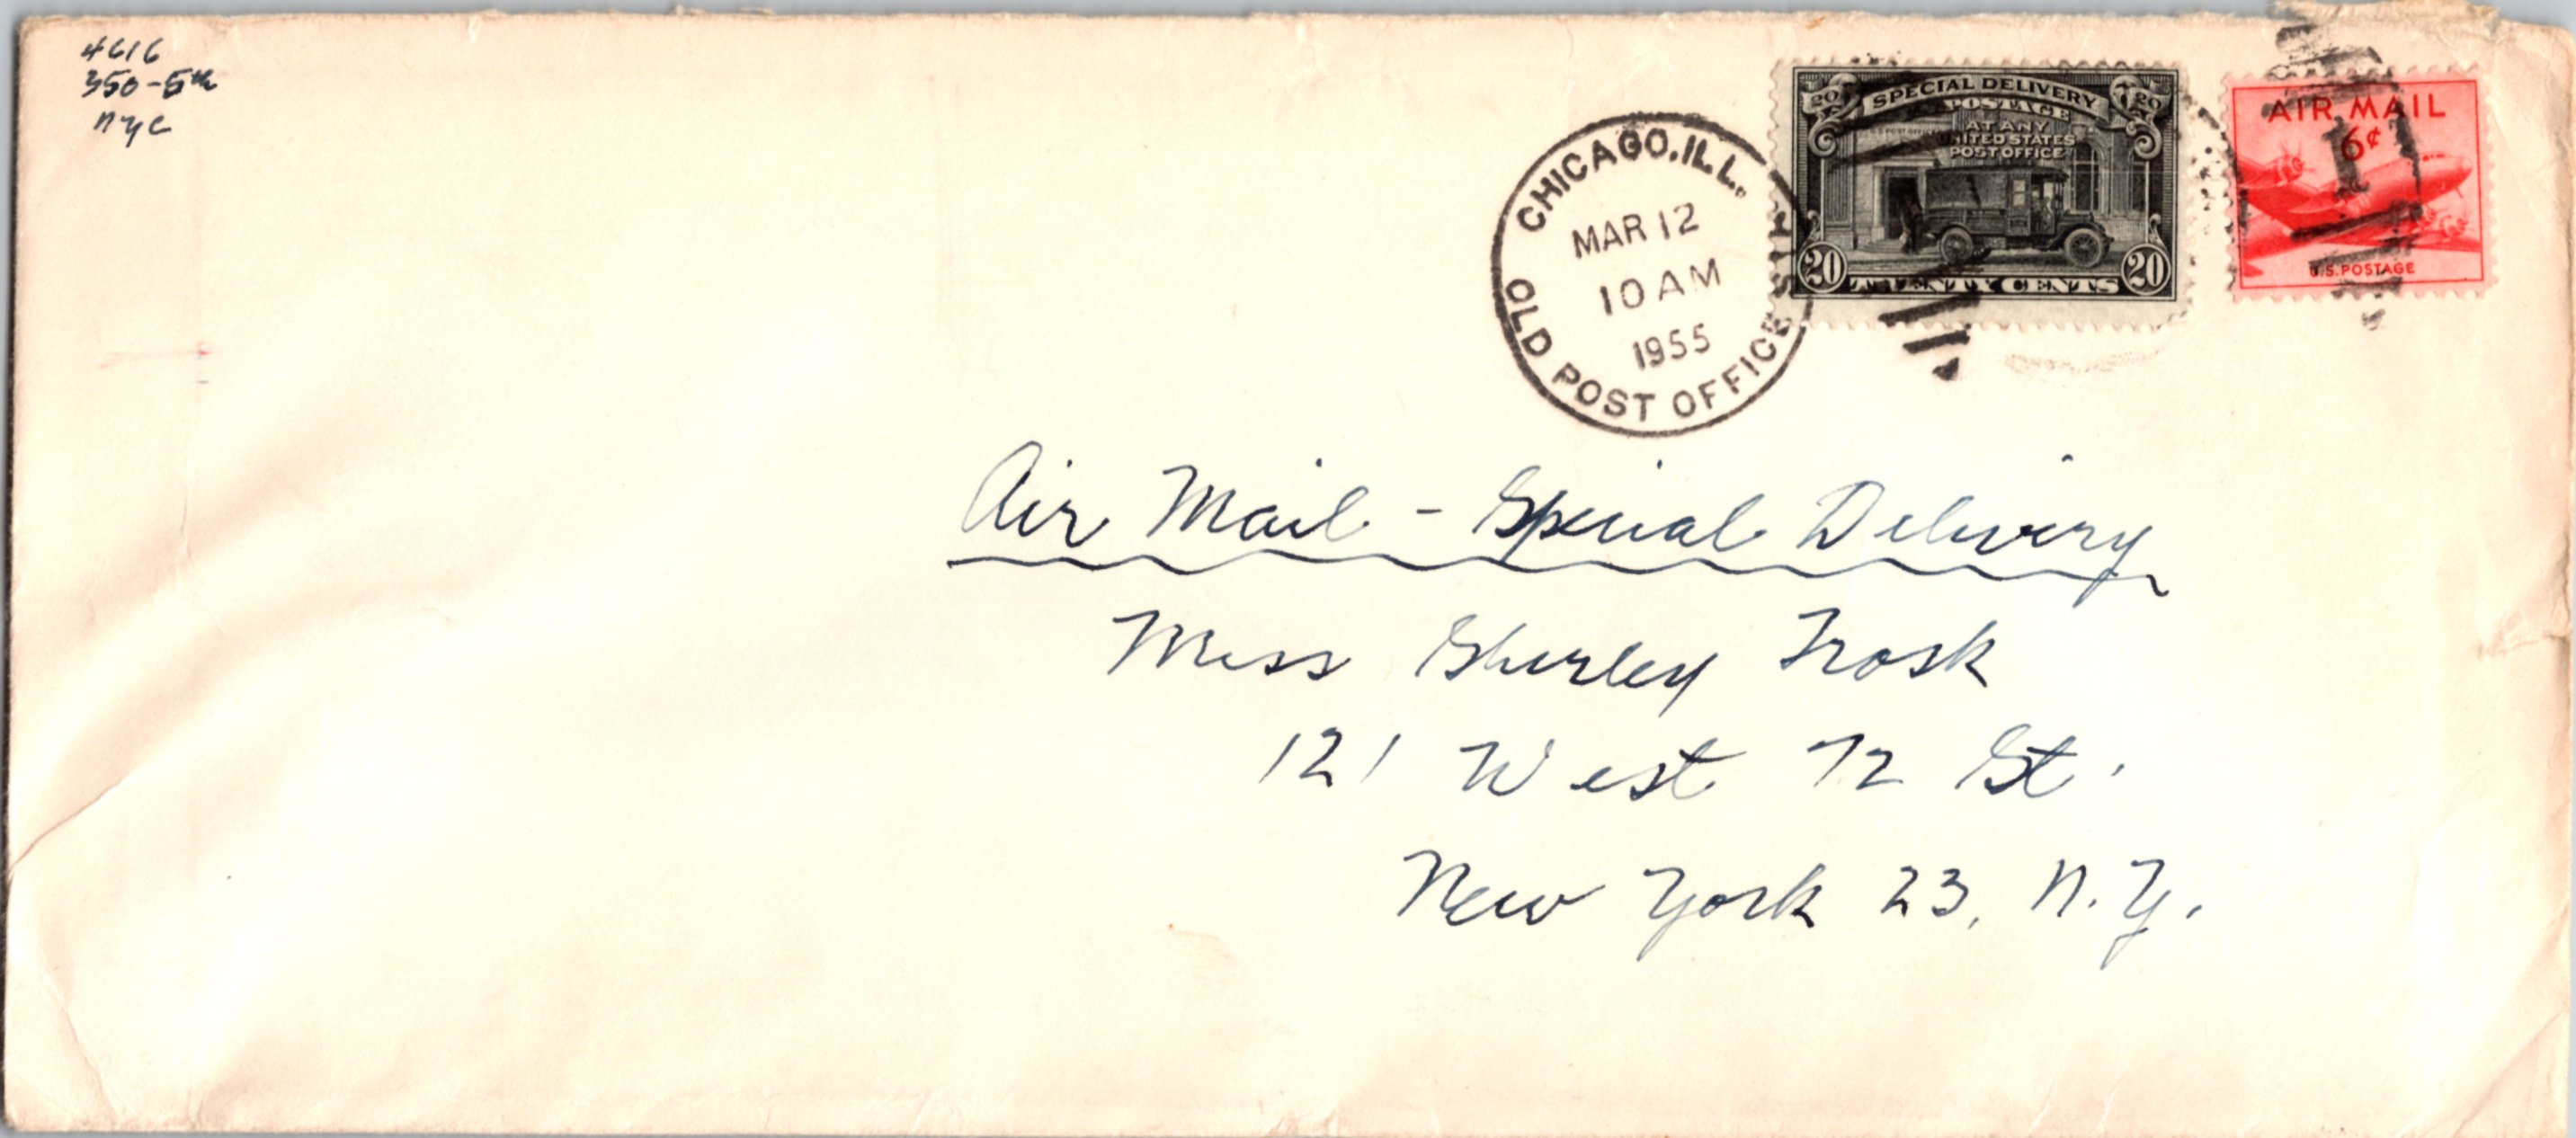 4616
350-5th
nyc
CHICAGO, ILL.
MAR 12
10 AM
1955
OLD POST OFFICE STA
SPECIAL DELIVERY
20 20
POSTAGE
U S POST OFFICE
AT ANY
UNITED STATES
POST OFFICE
20 TWENTY CENTS 20
AIR MAIL
6¢
1
U.S. POSTAGE
Air Mail - Special Delivery
Miss Shirley Trosk
121 West 72 St.
New York 23, N.Y.